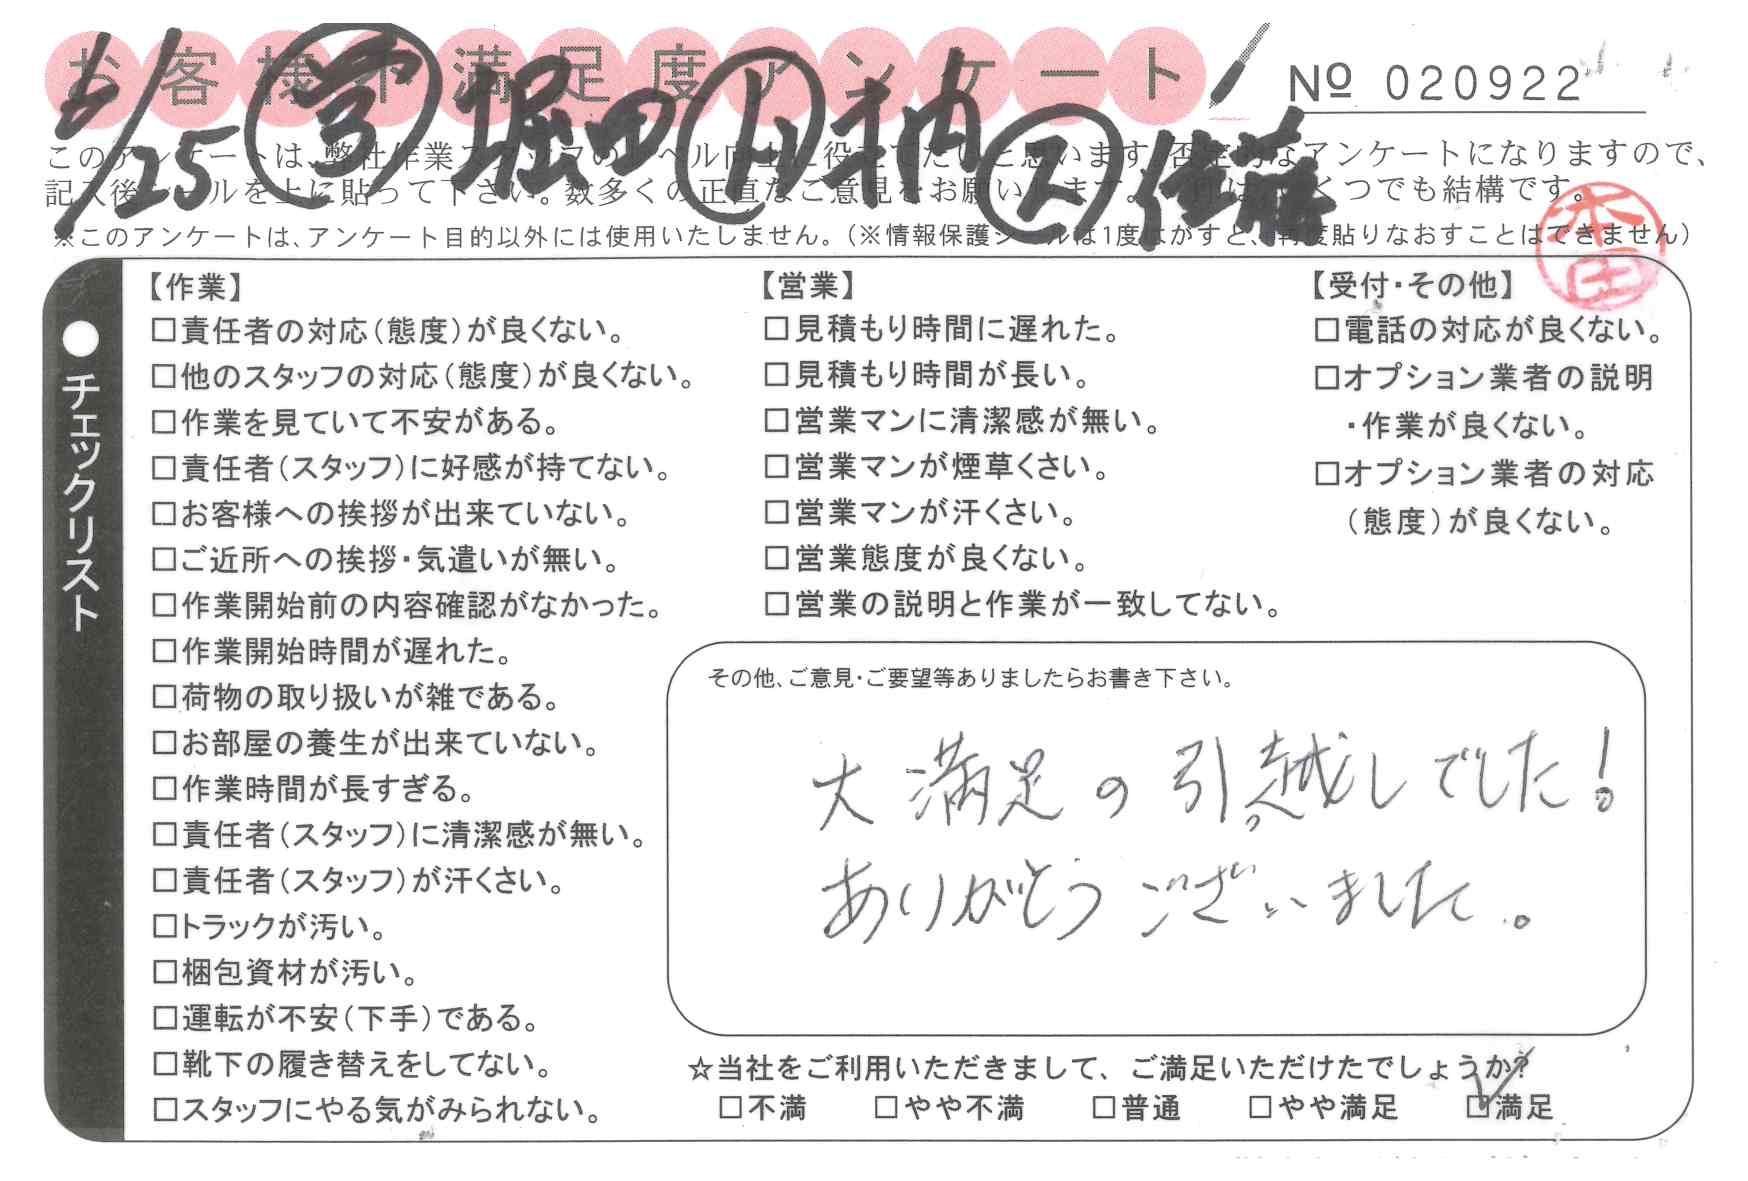 お客様不満足度アンケート
№ 020922
6/25 堀田 佐藤
このアンケートは、弊社作業スタッフのレベル向上に役立てたいと思います。否定的なアンケートになりますので、
記入後シールを上に貼って下さい。数多くの正直なご意見をお願いします。いくつでも結構です。
※このアンケートは、アンケート目的以外には使用いたしません。(※情報保護シールは1度はがすと、再度貼りなおすことはできません)
本田
●チェックリスト
【作業】
□責任者の対応(態度)が良くない。
□他のスタッフの対応(態度)が良くない。
□作業を見ていて不安がある。
□責任者(スタッフ)に好感が持てない。
□お客様への挨拶が出来ていない。
□ご近所への挨拶・気遣いが無い。
□作業開始前の内容確認がなかった。
□作業開始時間が遅れた。
□荷物の取り扱いが雑である。
□お部屋の養生が出来ていない。
□作業時間が長すぎる。
□責任者(スタッフ)に清潔感が無い。
□責任者(スタッフ)が汗くさい。
□トラックが汚い。
□梱包資材が汚い。
□運転が不安(下手)である。
□靴下の履き替えをしてない。
□スタッフにやる気がみられない。
【営業】
□見積もり時間に遅れた。
□見積もり時間が長い。
□営業マンに清潔感が無い。
□営業マンが煙草くさい。
□営業マンが汗くさい。
□営業態度が良くない。
□営業の説明と作業が一致してない。
【受付・その他】
□電話の対応が良くない。
□オプション業者の説明
・作業が良くない。
□オプション業者の対応
(態度)が良くない。
その他、ご意見・ご要望等ありましたらお書き下さい。
大満足の引っ越しでした!
ありがとうございました。
☆当社をご利用いただきまして、ご満足いただけたでしょうか?
□不満 □やや不満 □普通 □やや満足 ☑満足